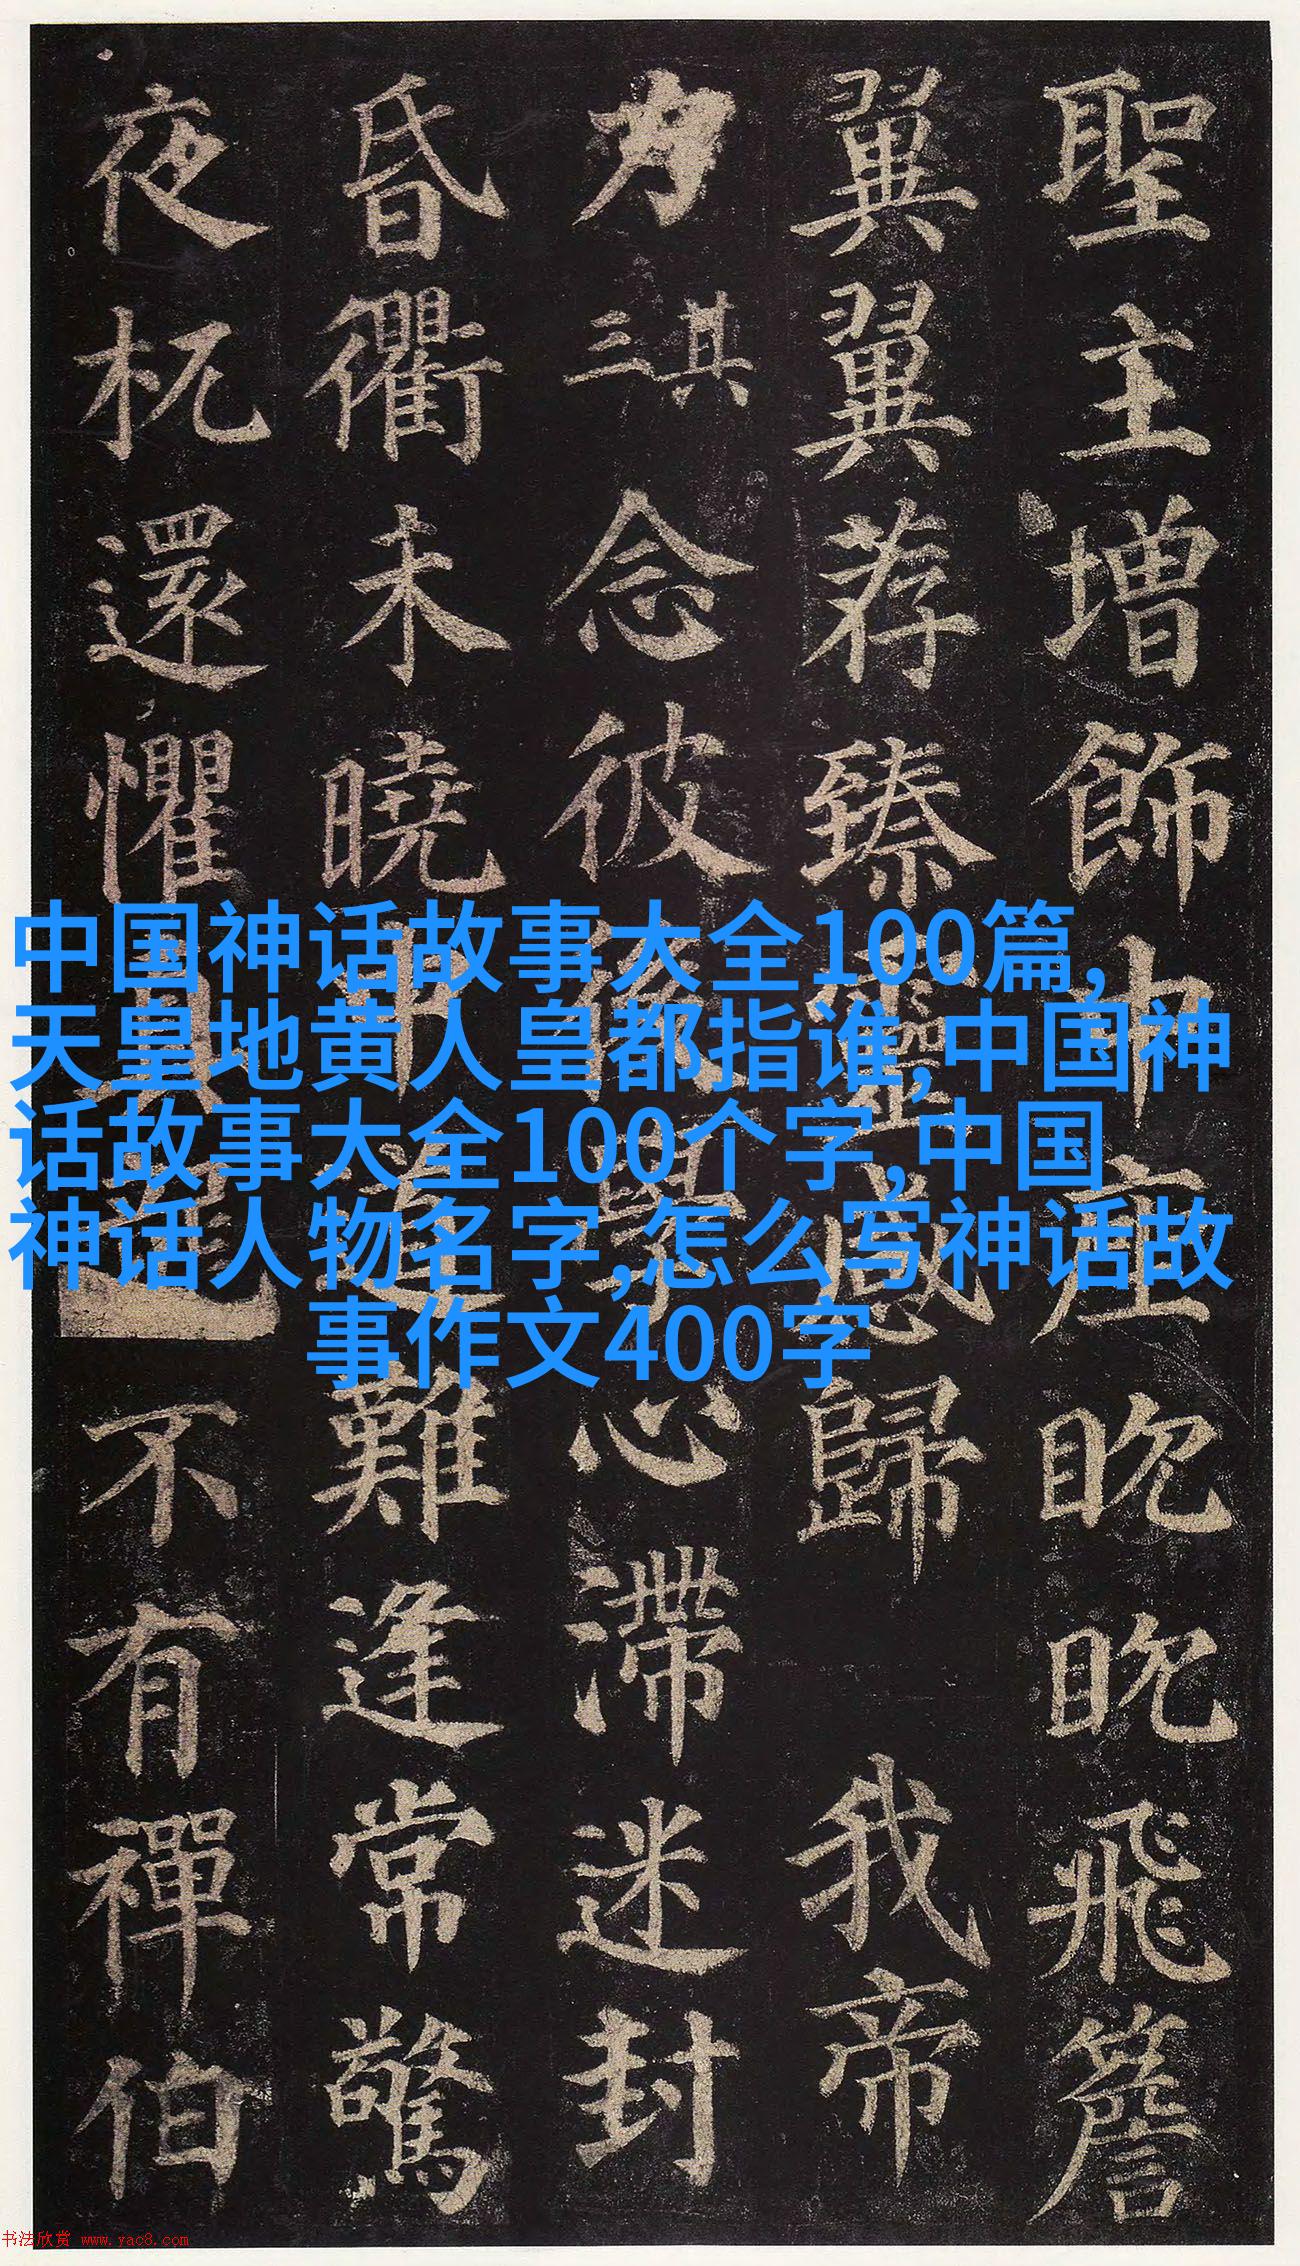 聖主增飾中座眈眈飛簷
翼翼荐臻靈感歸我帝
力其三念彼後學心滯迷封
昏衢未曉中途難逢常驚
夜杌還懼真龍不有禪伯
中国神话故事大全100篇,
天皇地黄人皇都指谁,中国神
话故事大全100个字,中国
神话人物名字,怎么写神话故
事作文400字
书法欣赏 www.yac8.com